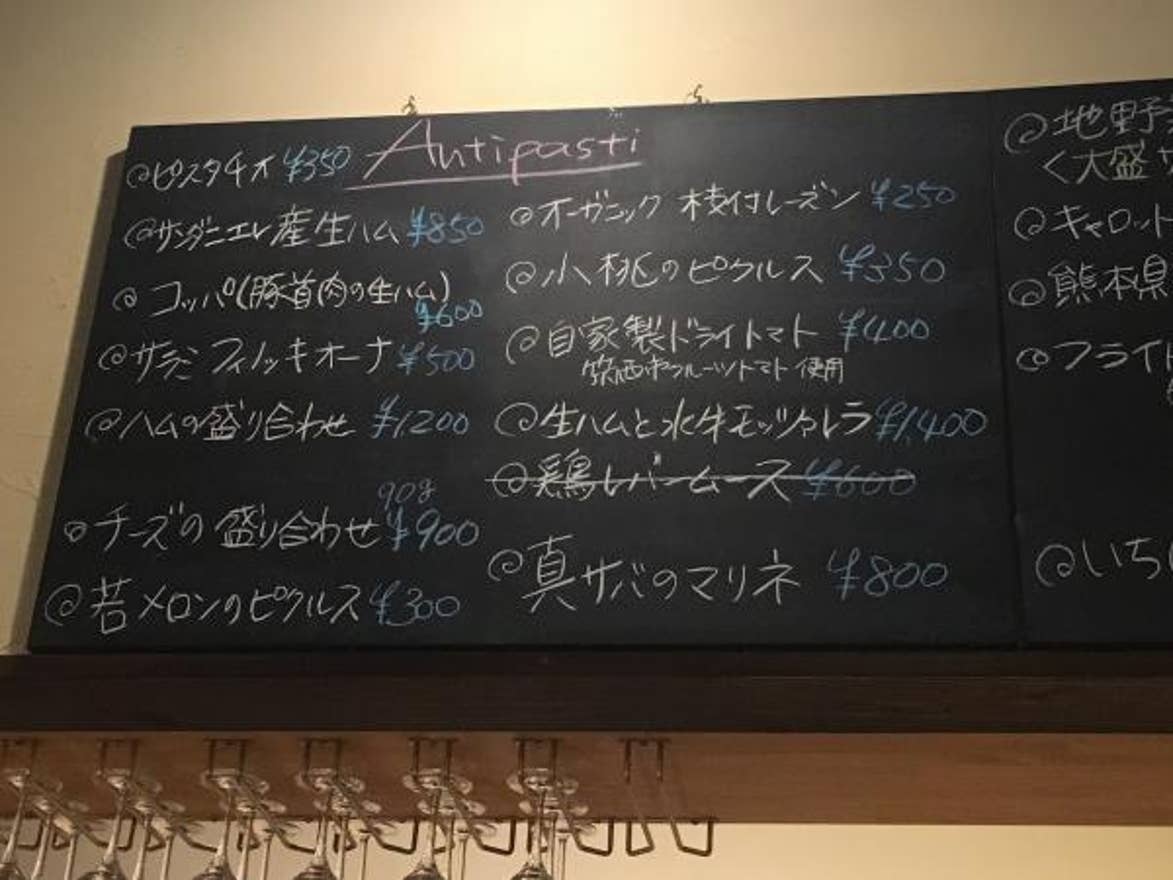 Antipasti
@ピスタチオ ¥350
@サンダニエレ産生ハム ¥850
@コッパ(豚首肉の生ハム)
¥600
@サラミ フィノッキオーナ ¥500
@ハムの盛り合わせ ¥1,200
90g
@チーズの盛り合わせ ¥900
@若メロンのピクルス ¥300
@オーガニック 枝付レーズン ¥250
@小桃のピクルス ¥350
@自家製ドライトマト ¥400
筑西市フルーツトマト使用
@生ハムと水牛モッツァレラ ¥1,400
@鶏レバームース ¥600
@真サバのマリネ ¥800
@地野
<大盛
@キャロット
@熊本県
@フライ
@いち